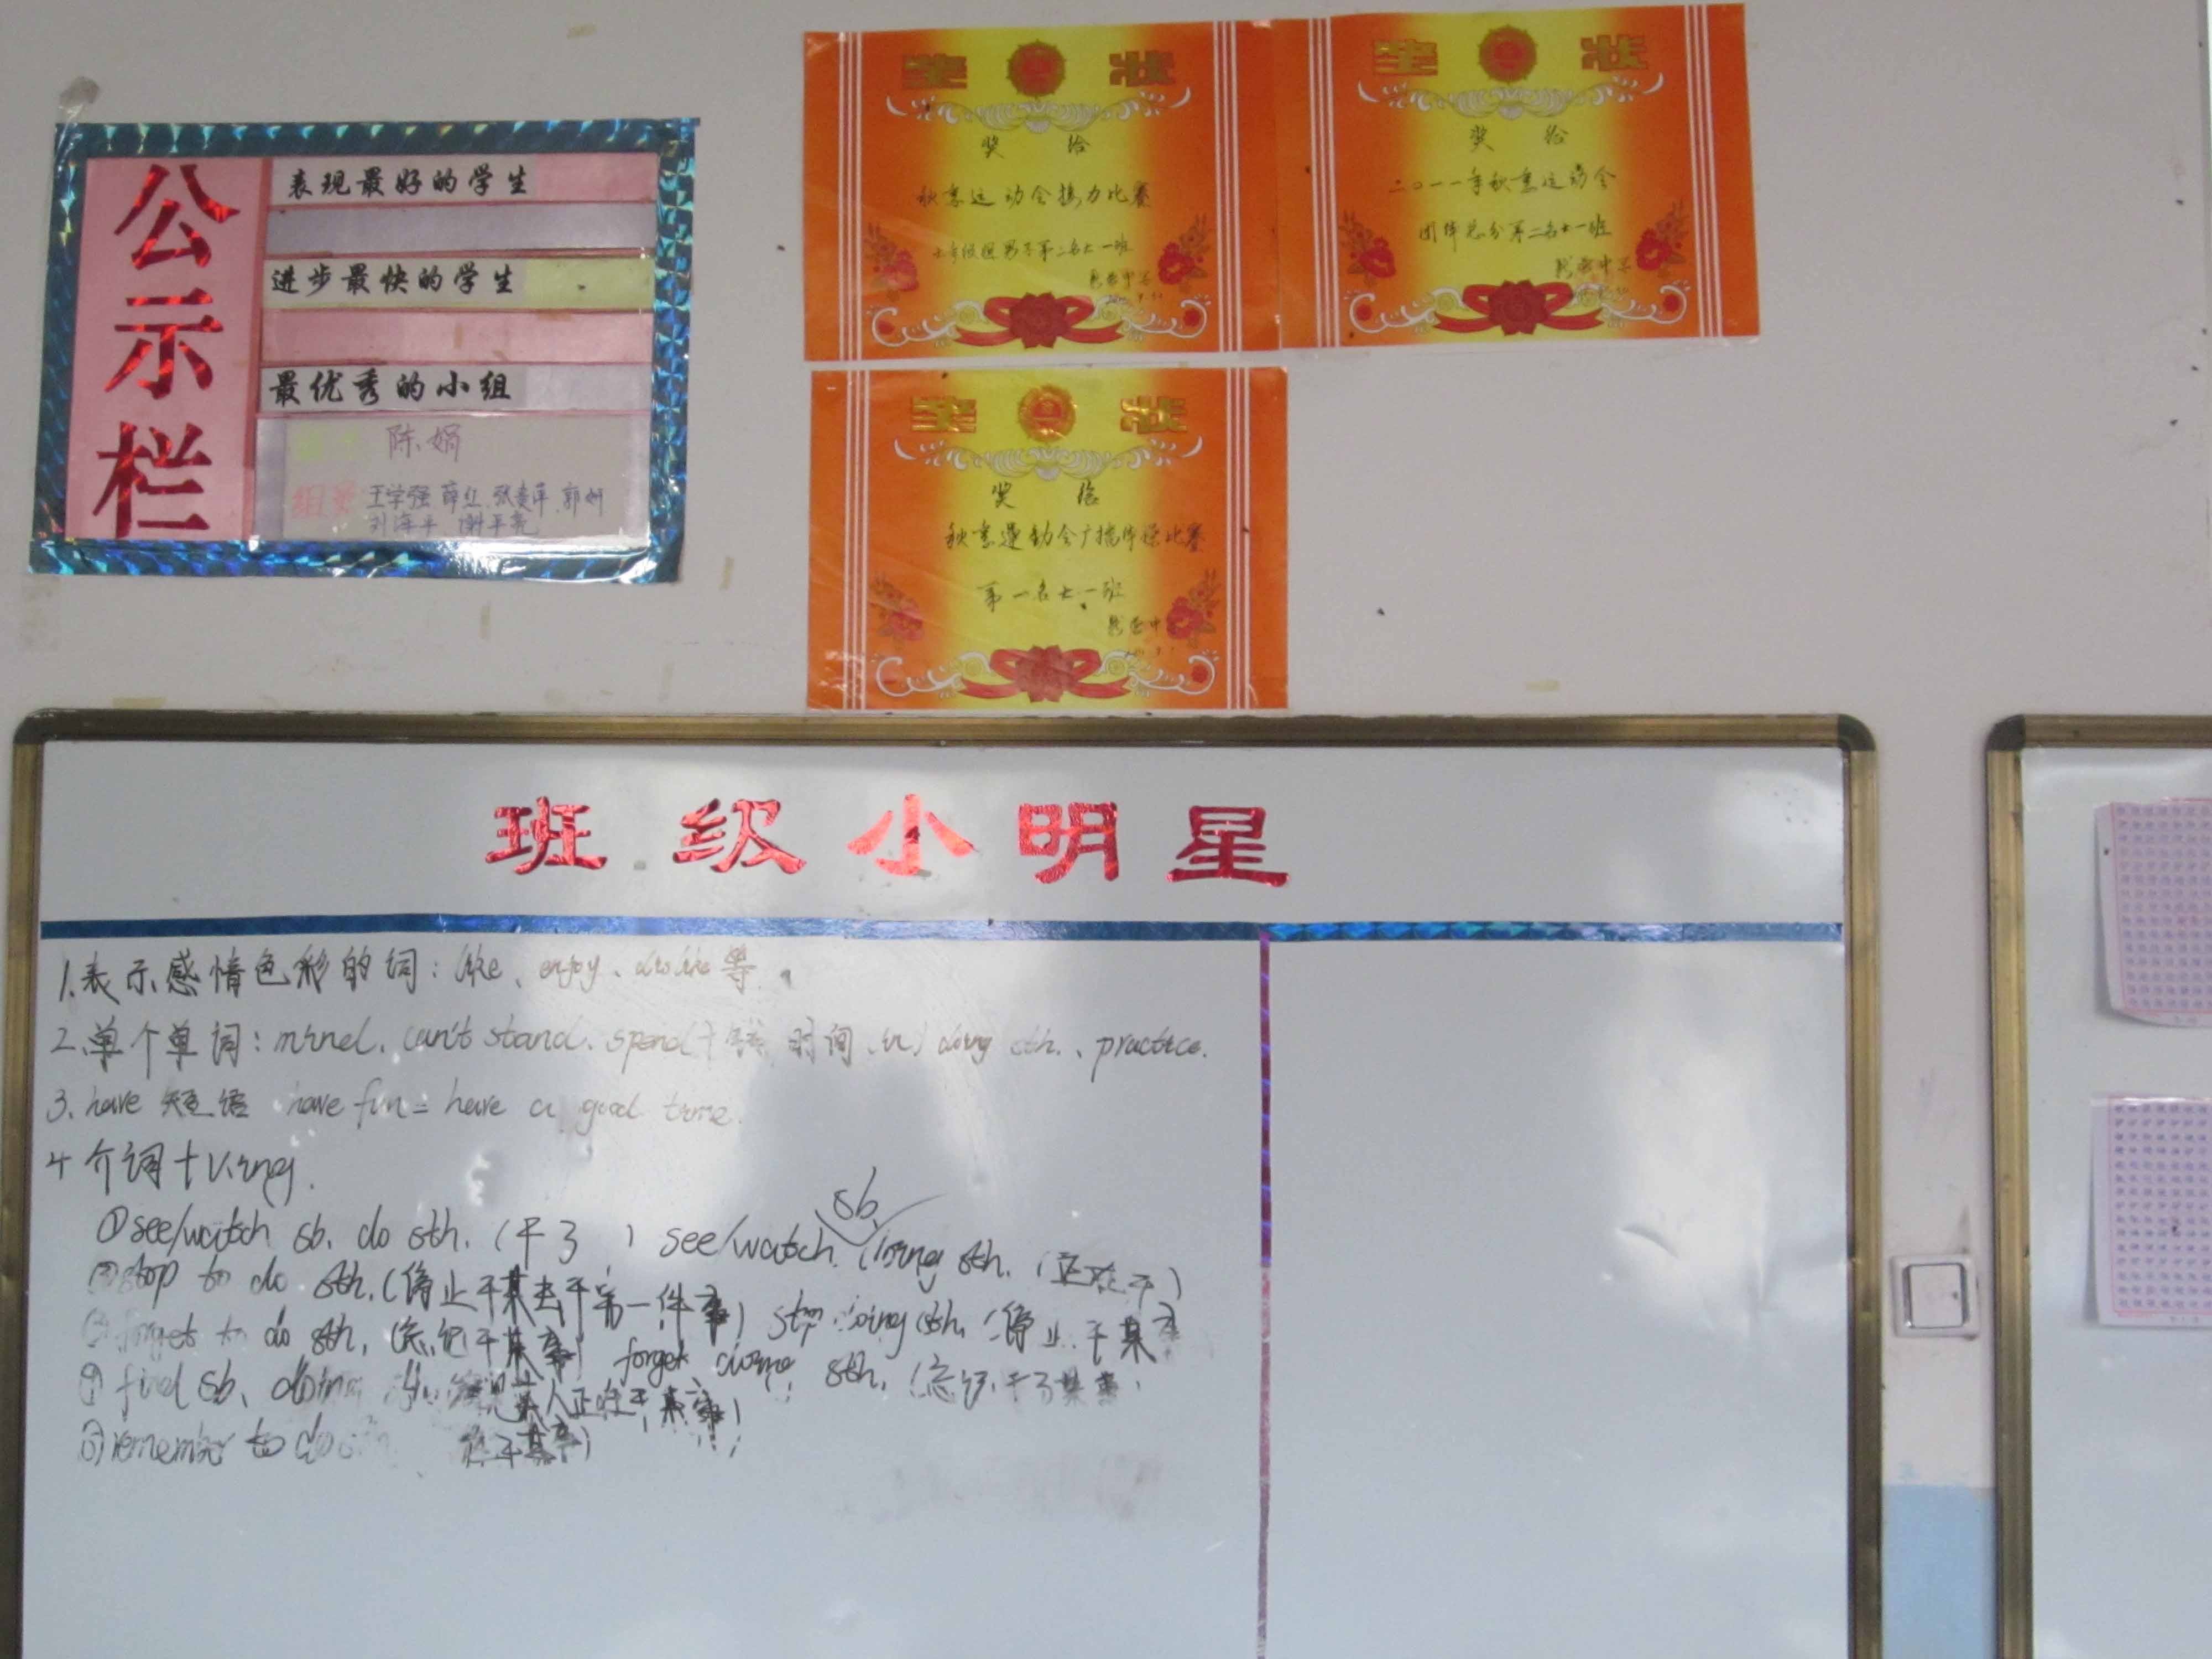 公示栏
表现最好的学生
进步最快的学生
最优秀的小组
陈娟
组员 王学强 薛红 张贵萍 郭妍
刘海平 谢平亮
奖状
奖给
秋季运动会接力比赛
七年级组男子第二名七一班
奖状
奖给
二〇一一年秋季运动会
团体总分第二名七一班
奖状
奖给
秋季運動会广播体操比赛
第一名七一班
班级小明星
1.表示感情色彩的词：like、enjoy、dislike等.
2.单个单词：mind、can't stand、spend(+钱 时间 in) doing sth.、practice.
3. have 短语 have fun = have a good time.
4 介词+V.ing.
①see/watch sb. do sth. (干了 ) see/watch sb. doing sth. (正在干)
②stop to do sth. (停止干某去干另一件事) stop doing sth. (停止干某事
③forget to do sth. (忘记干某事) forget doing sth. (忘记干了某事
④find sb. doing 某人正在干某事)
⑤remember to do 干某事)